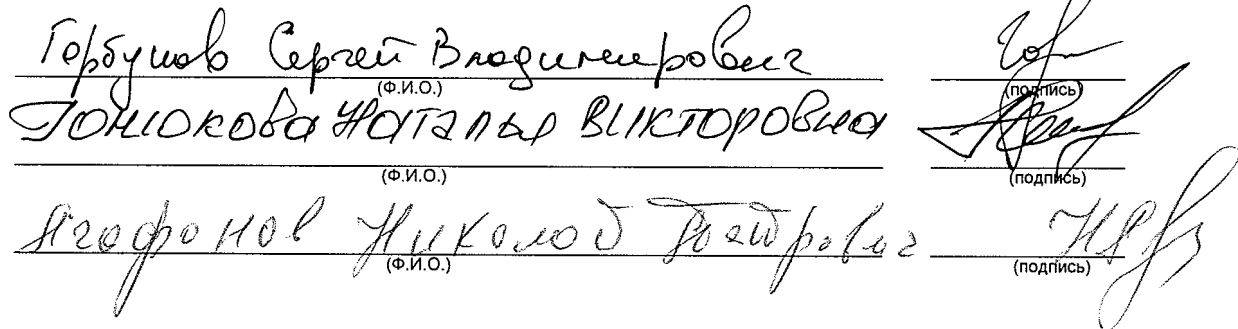 Горбунов Сергей Владимирович
(Ф.И.О.) (подпись)
Гонюкова Наталья Викторовна
(Ф.И.О.) (подпись)
Агафонов Николай
(Ф.И.О.) (подпись)